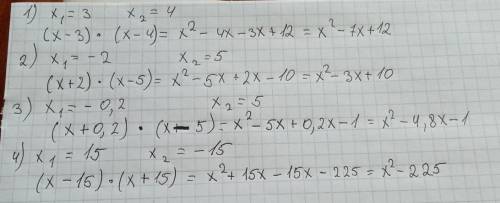 1) x₁ = 3 x₂ = 4
(x-3)·(x-4) = x² - 4x - 3x + 12 = x² - 7x + 12
2) x₁ = -2 x₂ = 5
(x+2)·(x-5) = x² - 5x + 2x - 10 = x² - 3x + 10
3) x₁ = -0,2 x₂ = 5
(x+0,2)·(x-5) = x² - 5x + 0,2x - 1 = x² - 4,8x - 1
4) x₁ = 15 x₂ = -15
(x-15)·(x+15) = x² + 15x - 15x - 225 = x² - 225